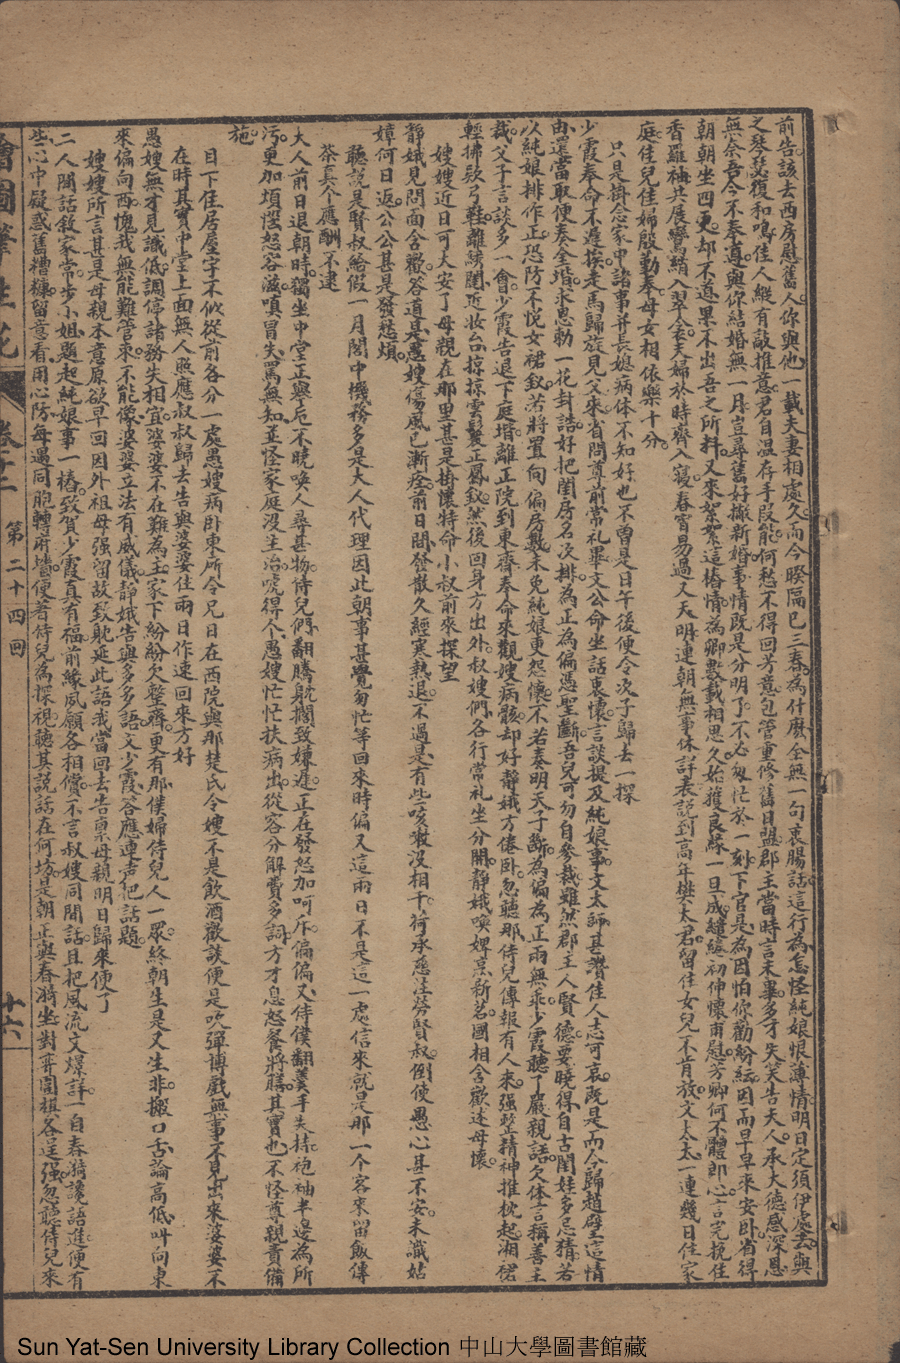 前告該去西房慰舊人你與他一載夫妻相處久而今暌隔已三春為什麽全無一句衷腸話這行為怎怪純娘恨薄情明日定須伊處去與
之琴瑟復和鳴佳人縱有敲推意君自溫存手段能何愁不得回芳意包管重修舊日盟郡主當時言未畢多才失笑告夫人承大德感深恩
無奈吾今不奏遵與你結婚無一月豈尋舊好撇新婚事情既是分明了不必匆忙於一刻下官是為因怕你勸紛紜因而早早來安臥省得
朝朝坐四更却不道果不出吾之所料又來絮絮這樁情為卿數載相思久始獲良緣一旦成繾綣初伸懷甫慰芳卿何不體郎心言完挽住
香羅袖共展鸞綃入翠衾夫婦於時齊入寢春宵易過又天明連朝無事休詳表說到高年樊太君留住女兒不肯放文太太一連幾日住家
庭佳兒佳婦殷勤奉母女相依樂十分
只是掛念家中諸事并長媳病体不知好也不曾是日午後便令次子歸去一探
少霞奉命不遲挨走馬歸旋見父來省問尊前常礼畢文公命坐話衷懷言談提及純娘事文太師甚讚佳人志可哀既是而今歸趙壁這情
由還當取便奏金堦求恩勅一花封誥好把閨房名次排為正為偏憑聖斷吾兒可勿自參裁雖然郡主人賢德要曉得自古閨娃多忌猜若
以純娘排作正恐防不悅女裙釵若將置向偏房數未免純娘更怨懷不若奏明天子斷為偏為正兩無乖少霞聽了嚴親話久体言稱善主
裁父子言談多一會少霞告退下庭堦離正院到東齋奉命來觀嫂病骸却好靜娥方倦臥忽聽那侍兒傳報有人來强整精神推枕起湘裙
輕拂款弓鞋離綉闥近妝台掠掠雲鬟正鳳釵然後回身方出外叔嫂們各行常礼坐分開靜娥喚婢烹新茗國相含歡述母懷
嫂嫂近日可大安了母親在那里甚是掛懷特命小叔前來探望
靜娥見問面含歡答道是愚嫂傷風已漸痊前日間發散久經寒熱退不過是有些咳嗽沒相干荷承慈注勞賢叔倒使愚心甚不安未識姑
嫜何日返公公甚是發愁煩
聽說是賢叔給假一月閣中機務多是大人代理因此朝事甚覺匆忙等回來時偏又這兩日不是這一處信來就是那一个客來留飯傳
茶真个應酬不逮
大人前日退朝時獨坐中堂正舉卮不曉喚人尋甚物侍兒們翻騰耽擱致嫌遲正在發怒加呵斥偏偏又侍僕翻羹手失持袍袖半邊為所
污更加煩惱怒容滋嗔冒失罵無知並怪家庭沒主冶唬得个愚嫂忙忙扶病出從容分解費多詞方才息怒餐將膳其實也不怪尊親責備
施
目下住居屋宇不似從前各分一處愚嫂病臥東所令兄日在西院與那楚氏令嫂不是飲酒歡談便是吹彈博戲無事不見出來婆婆不
在時其實中堂上面無人照應叔叔歸去告與婆婆住兩日作速回來方好
愚嫂無才見識低調停諸務失相宜婆婆不在難為主家下紛紛欠整齊更有那僕婦侍兒人一眾終朝生是又生非搬口舌論高低叫向東
來偏向西愧我無能難管束不能像婆婆立法有威儀靜娥告與多多語文少霞答應連声把話題
嫂嫂所言甚是母親本意原欲早回因外祖母强留故致耽延此語我當回去告禀母親明日歸來便了
二人閒話敘家常步小姐題起純娘事一樁致賀少霞真有福前緣夙願各相償不言叔嫂同閒話且把風流文爆詳一自春猜讒語進便有
些心中疑惑舊糟糠留意看用心防每遇同胞轉府墻便著侍兒為探視聽其說話在何場是朝正與春漪坐對弈圍棋各逞强忽聽侍兒來
繪圖筆生花 卷十二 第二十四回 十六
Sun Yat-Sen University Library Collection 中山大學圖書館藏